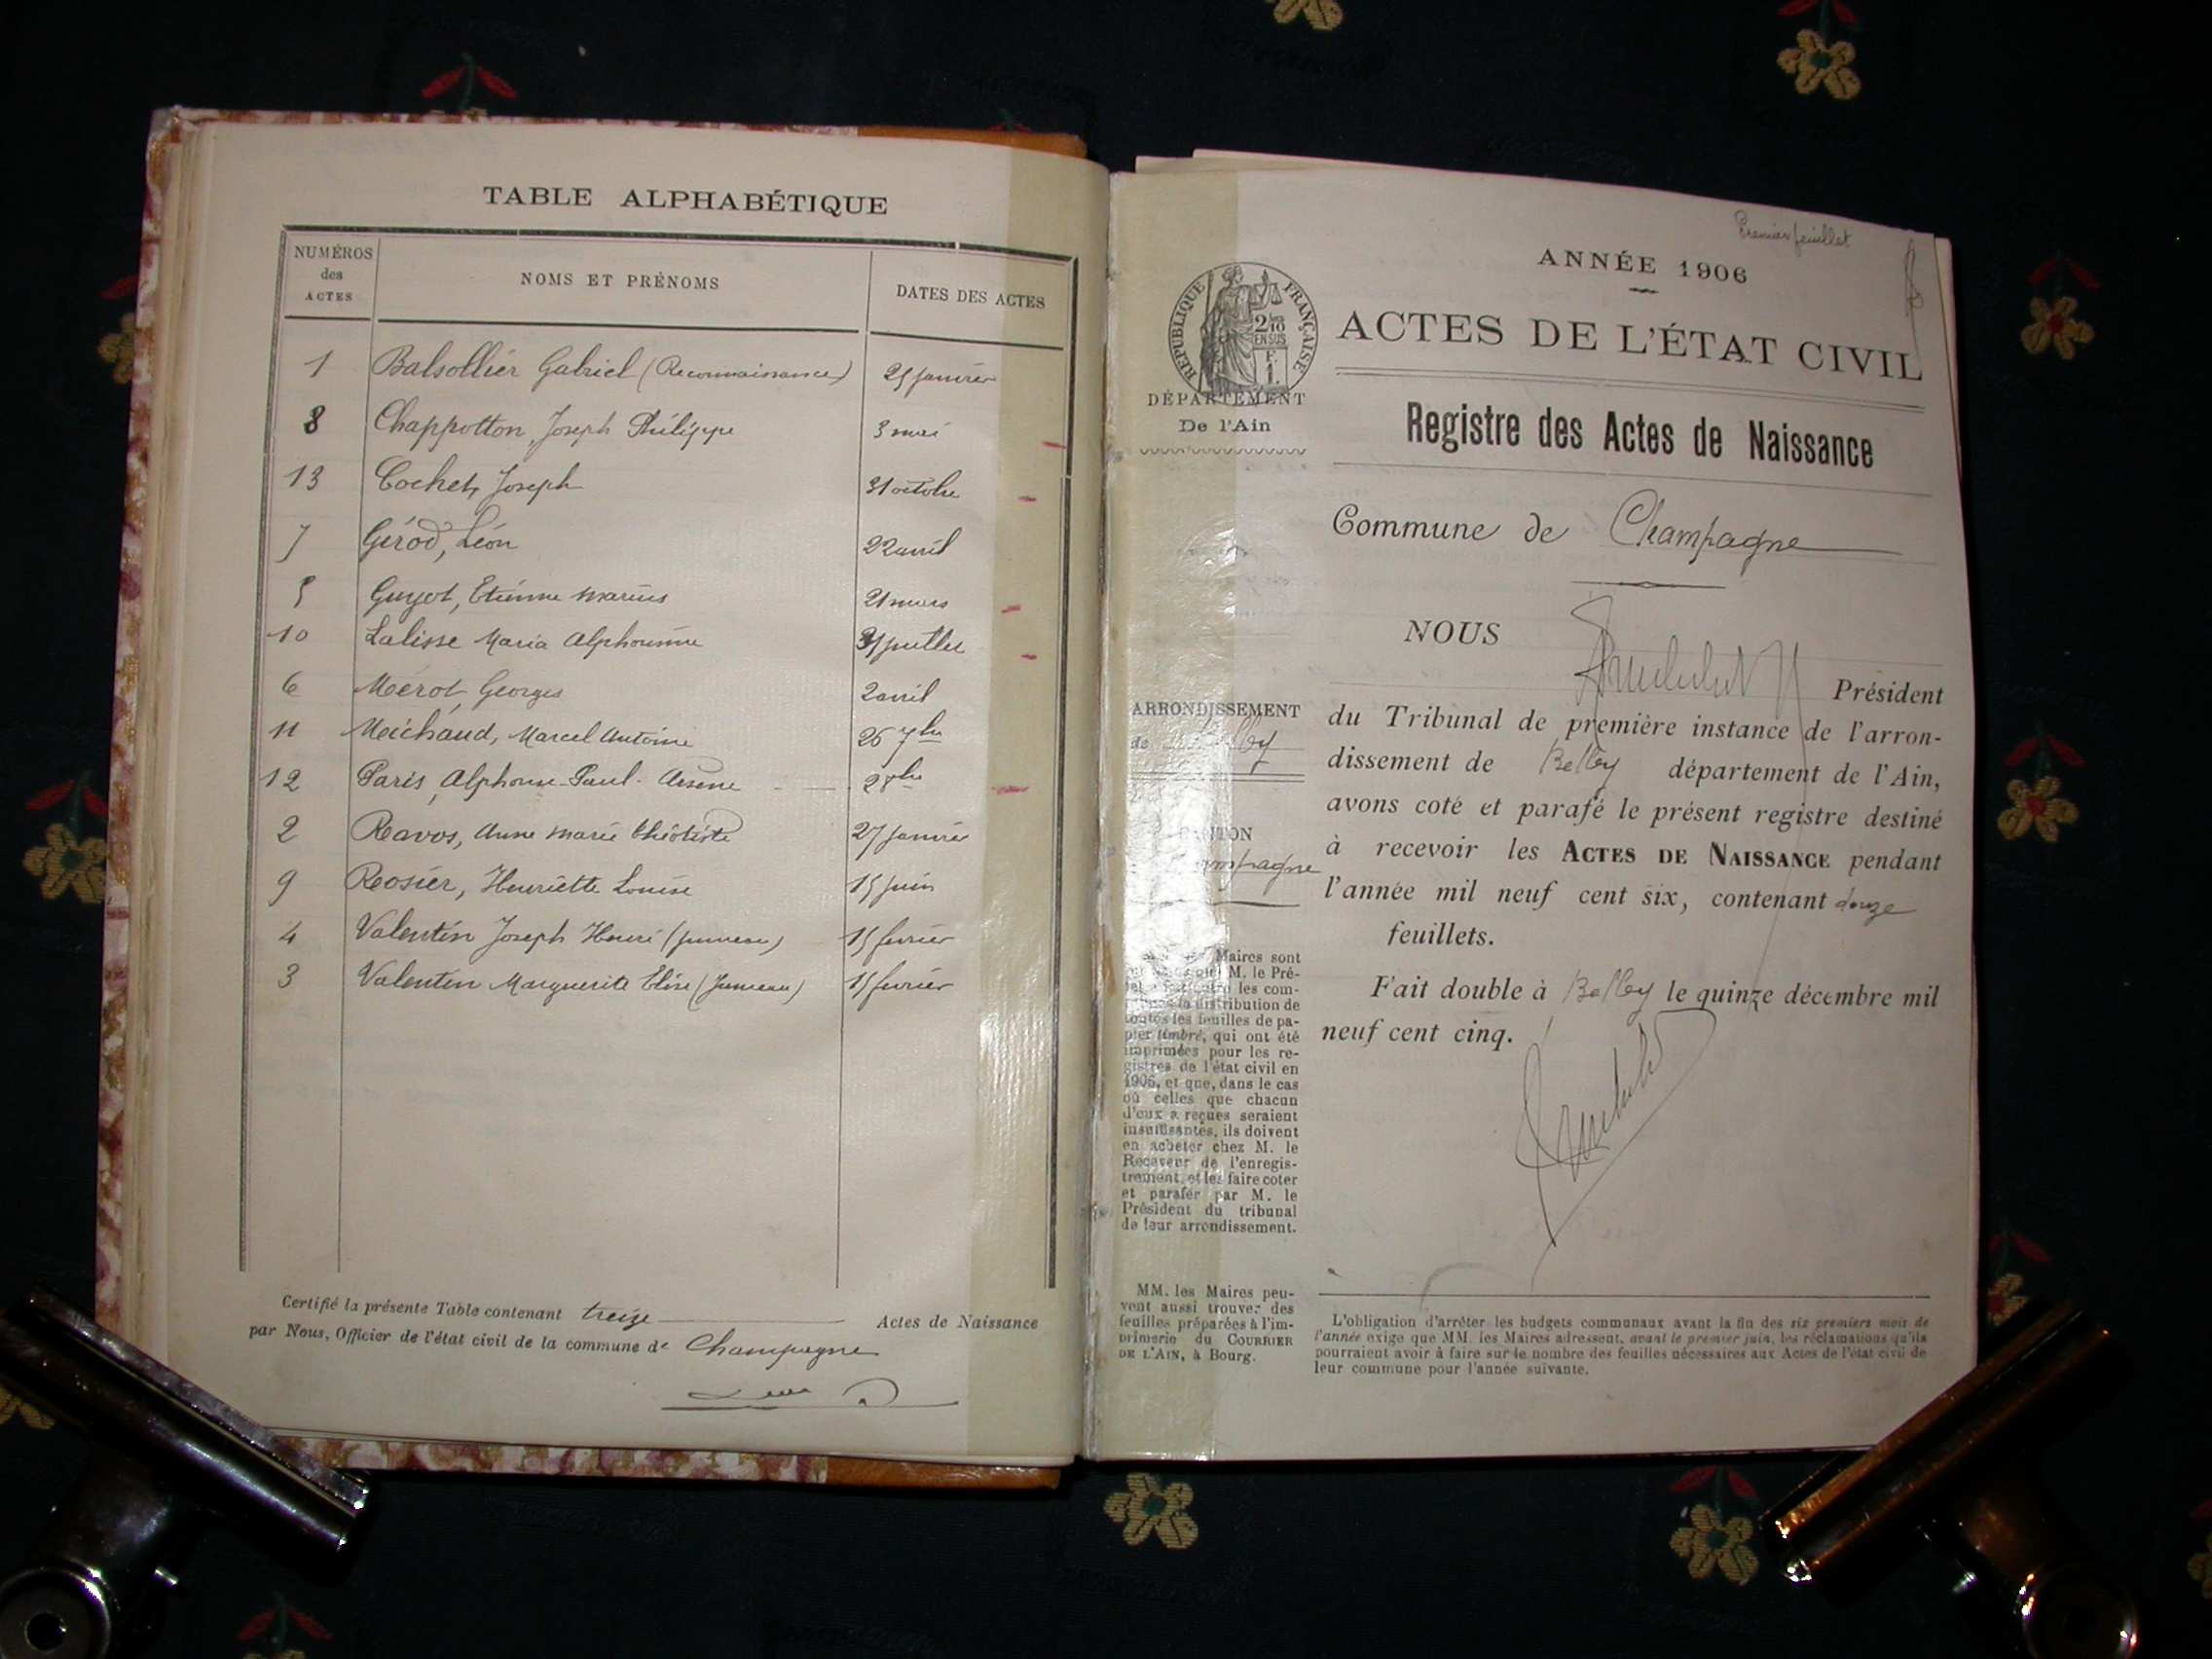 TABLE ALPHABÉTIQUE
NUMÉROS des ACTES
NOMS ET PRÉNOMS
DATES DES ACTES
1 Balsollier Gabriel (Reconnaissance) 25 janvier
8 Chappotton, Joseph Philippe 3 mai
13 Cochet, Joseph 31 octobre
7 Gérod, Léon 22 avril
5 Guyot, Etienne Marius 21 mars
10 Lalisse Maria Alphonsine juillet
6 Mérot, Georges 2 avril
11 Michaud, Marcel Antoine 26 7bre
12 Paris, Alphonse Paul Arsène 2 8bre
2 Ravos, Anne Marie 27 janvier
9 Rosier, Henriette Louise 15 juin
4 Valentin Joseph Henri (jumeau) 15 février
3 Valentin Marguerite Elise (Jumeau) 15 février
Certifié la présente Table contenant treize Actes de Naissance
par Nous, Officier de l'état civil de la commune de Champagne
Premier feuillet
ANNÉE 1906
RÉPUBLIQUE FRANÇAISE
2/10 EN SUS
F. 1.
ACTES DE L'ÉTAT CIVIL
DÉPARTEMENT
De l'Ain
Registre des Actes de Naissance
Commune de Champagne
NOUS
Président
ARRONDISSEMENT
de Belley
du Tribunal de première instance de l'arron-
dissement de Belley département de l'Ain,
avons coté et parafé le présent registre destiné
à recevoir les ACTES DE NAISSANCE pendant
l'année mil neuf cent six, contenant douze
feuillets.
CANTON
Champagne
Fait double à Belley le quinze décembre mil
neuf cent cinq.
Maires sont
M. le Pré-
les com-
la distribution de
toutes les feuilles de pa-
pier timbré, qui ont été
imprimées pour les re-
gistres de l'état civil en
1906, et que, dans le cas
où celles que chacun
d'eux a reçues seraient
insuffisantes, ils doivent
en acheter chez M. le
Receveur de l'enregis-
trement, et les faire coter
et parafer par M. le
Président du tribunal
de leur arrondissement.
MM. les Maires peu-
vent aussi trouver des
feuilles préparées à l'im-
primerie du COURRIER
DE L'AIN, à Bourg.
L'obligation d'arrêter les budgets communaux avant la fin des six premiers mois de
l'année exige que MM. les Maires adressent, avant le premier juin, les réclamations qu'ils
pourraient avoir à faire sur le nombre des feuilles nécessaires aux Actes de l'état civil de
leur commune pour l'année suivante.